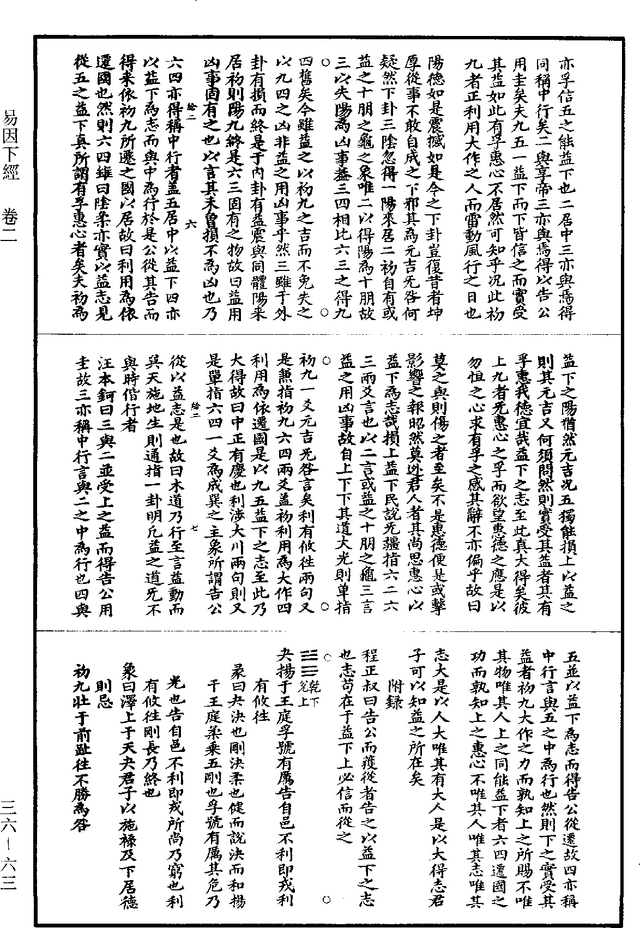 亦孚信五之能益下也二居中三亦與焉得
同稱中行矣二與享帝三亦與焉得以告公
用圭矣夫九五一益下而下皆信之而實受
其益如此有孚惠心不居然可知乎況此初
九者正利用大作之人而雷動風行之日也
陽德如是震撼如是今之下卦豈復昔者坤
厚從事不敢自成之下邪其為元吉无咎何
疑然下卦三陰忽得一陽來居二初自有或
益之十朋之龜之象唯二以得陽為十朋故
三以失陽為凶事葢三四相比六三之得九
四舊矣今雖益之以初九之吉而不免失之
以九四之凶非益之用凶事乎然三雖于外
卦有損而終是于內卦有益震與同體陽來
居初則陽九終是六三固有之物故曰益用
凶事固有之也以言其未曾損不為凶也乃
六四亦得稱中行者葢五居中以益下四亦
以益下為志而與中為行於是公從其告而
得來依初九所遷之國以居故曰利用為依
遷國也然則六四雖曰陰柔亦實以益志見
從五之益下真所謂有孚惠心者矣夫初為
益下之陽偕然元吉況五獨能損上以益之
則其元吉又何須問然則實受其益者其有
孚惠我德宜哉益下之志至此真大得矣彼
上九者无惠心之孚而欲望惠德之應是以
勿恒之心求有孚之感其辭不亦偏乎故曰
莫之與則傷之者至矣不是惠德便是或擊
影響之報昭然莫逃君人者其尚思惠心以
益下為志哉損上益下民說无疆指六二六
三兩爻言也以二言或益之十朋之龜三言
益之用凶事故自上下下其道大光則單指
初九一爻元吉无咎言矣利有攸往兩句又
是兼指初九六四兩爻葢初利用為大作四
利用為依遷國是以九五益下之志至此乃
大得故曰中正有慶也利涉大川兩句則又
是單指六四一爻為成巽之主象所謂告公
從以益志是也故曰木道乃行至言益動而
巽天施地生則通指一卦明凡益之道无不
與時偕行者
汪本鈳曰三與二並受上之益而得告公用
圭故三亦稱中行言與二之中為行也四與
五並以益下為志而得告公從遷故四亦稱
中行言與五之中為行也然則下之實受其
益者初九大作之力而孰知上之所賜不唯
其物唯其人上之同能益下者六四遷國之
功而孰知上之惠心不唯其人唯其志唯其
志大是以人大唯其有大人是以大得志君
子可以知益之所在矣
附錄
程正叔曰告公而獲從者告之以益下之志
也志苟在于益下上必信而從之
䷪乾下兌上
夬揚于王庭孚號有厲告自邑不利即戎利
有攸往
彖曰夬決也剛決柔也健而說決而和揚
于王庭柔乘五剛也孚號有厲其危乃
光也告自邑不利即戎所尚乃窮也利
有攸往剛長乃終也
象曰澤上于天夬君子以施祿及下居德
則忌
初九壯于前趾往不勝為咎
易因下經 卷二
三六–六三
六
七